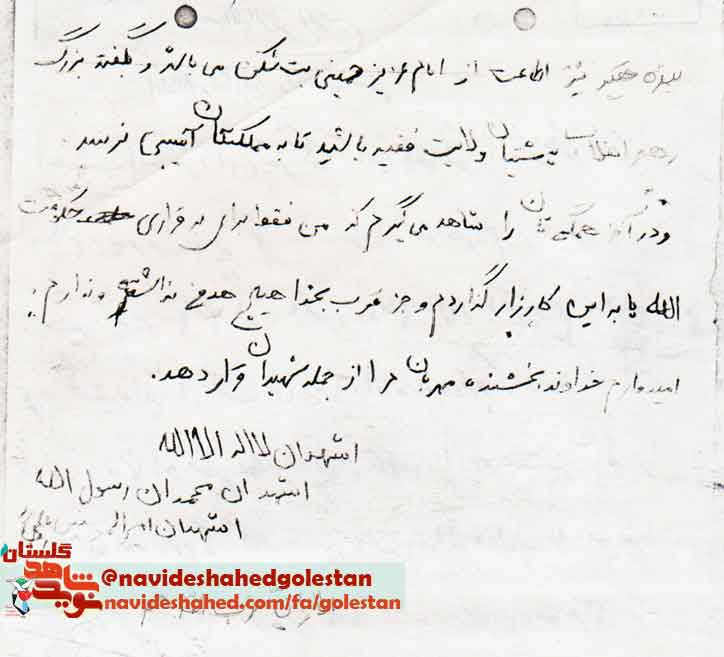 دیگر نیز اطاعت از امام عزیز خمینی بت شکن می باشد و بگفته بزرگ
رهبر انقلاب پشتیبان ولایت فقیه باشید تا به مملکتتان آسیبی نرسد .
و در آخر همگی تان را شاهد می گیرم که من فقط برای برقراری حکومت
الله پا به این کارزار گذاردم و جز قرب بخدا هیچ هدفی نداشته و ندارم
امیدوارم خداوند بخشنده مهربان مرا از جمله شهیدان قرار دهد .
اشهد ان لا اله الا الله
اشهد ان محمدا رسول الله
اشهد ان امیرالمؤمنین علی
گلستان
نوید شاهد
@navideshahedgolestan
navideshahed.com/fa/golestan